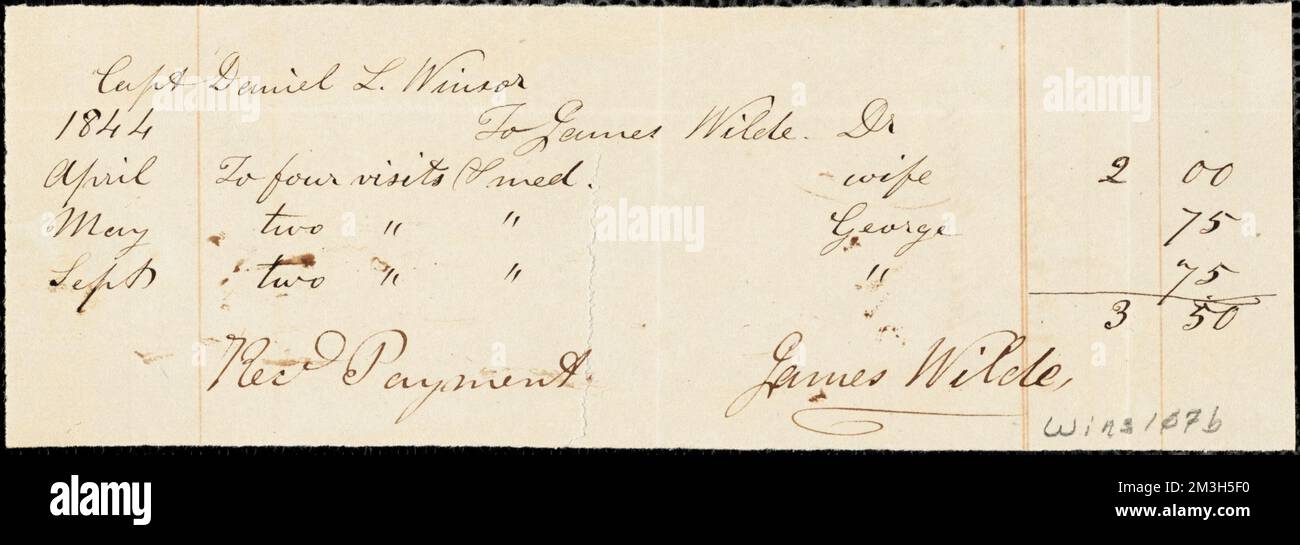 Capt Daniel L. Winsor
1844 To James Wilde. Dr
April To four visits & med. wife 2 00
May two " " George 75
Sept two " " " 75
3 50
Rec'd Payment James Wilde,
Wins 167b
alamy
Image ID: 2M3H5F0
www.alamy.com